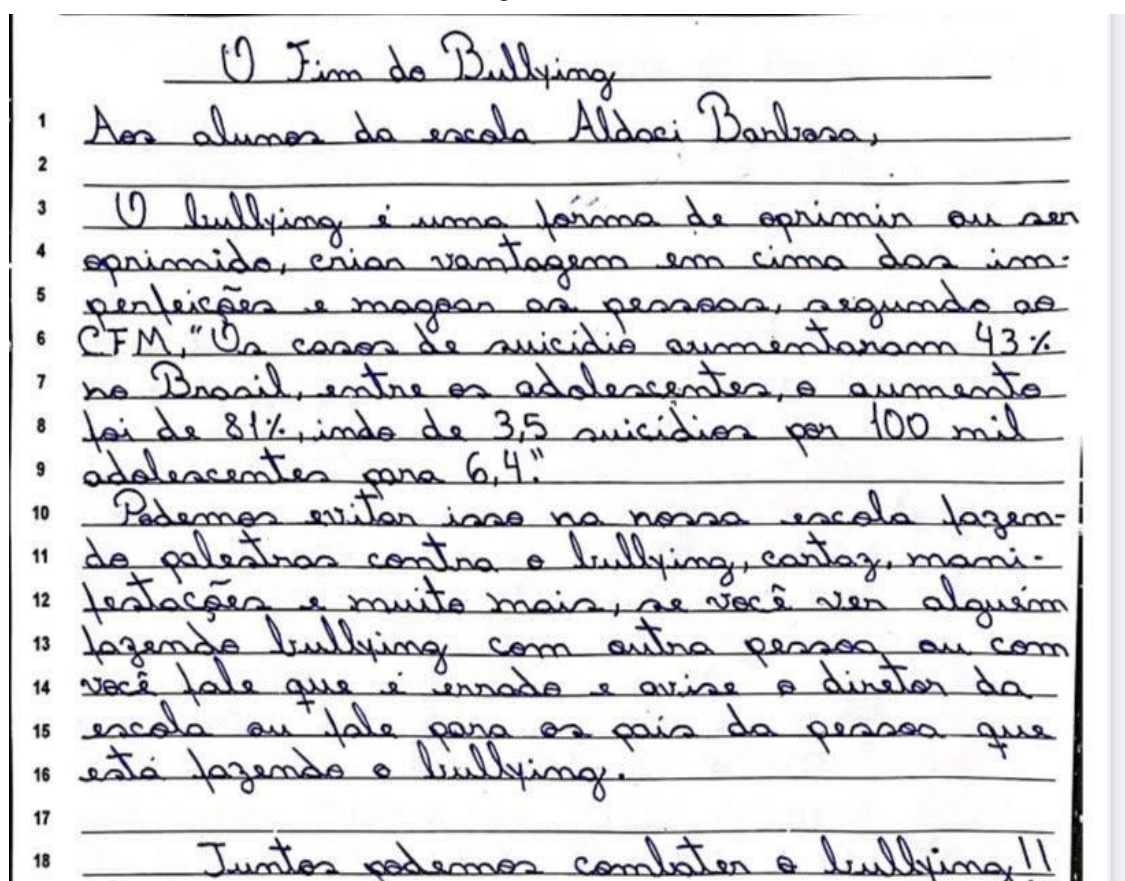 O Fim do Bullying
1 Aos alunos da escola Aldaci Barbosa,
2
3 O bullying é uma fórma de oprimir ou ser
4 oprimido, criar vantagem em cima das im-
5 perfeições e magoar as pessoas, segundo ao
6 CFM, "Os casos de suicídio aumentaram 43%
7 no Brasil, entre os adolescentes, o aumento
8 foi de 81%, indo de 3,5 suicídios por 100 mil
9 adolescentes para 6,4."
10 Podemos evitar isso na nossa escola fazen-
11 do palestras contra o bullying, cartaz, mani-
12 festações e muito mais, se você ver alguém
13 fazendo bullying com outra pessoa ou com
14 você fale que é errado e avise o diretor da
15 escola ou fale para os pais da pessoa que
16 está fazendo o bullying.
17
18 Juntos podemos combater o bullying!!